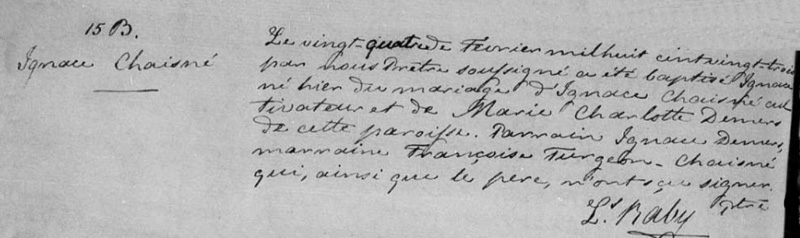 15 B.
Ignace Chaisné
Le vingt-quatre de Fevrier mil huit cent vingt-trois
par nous Prêtre soussigné a été baptisé Ignace
né hier du mariage d'Ignace Chaisné cul
tivateur et de Marie Charlotte Demers
de cette paroisse. Parrain Ignace Demers,
marraine Françoise Turgeon-Chaisné
qui, ainsi que le père, n'ont sçu signer.
Ls Raby ptre